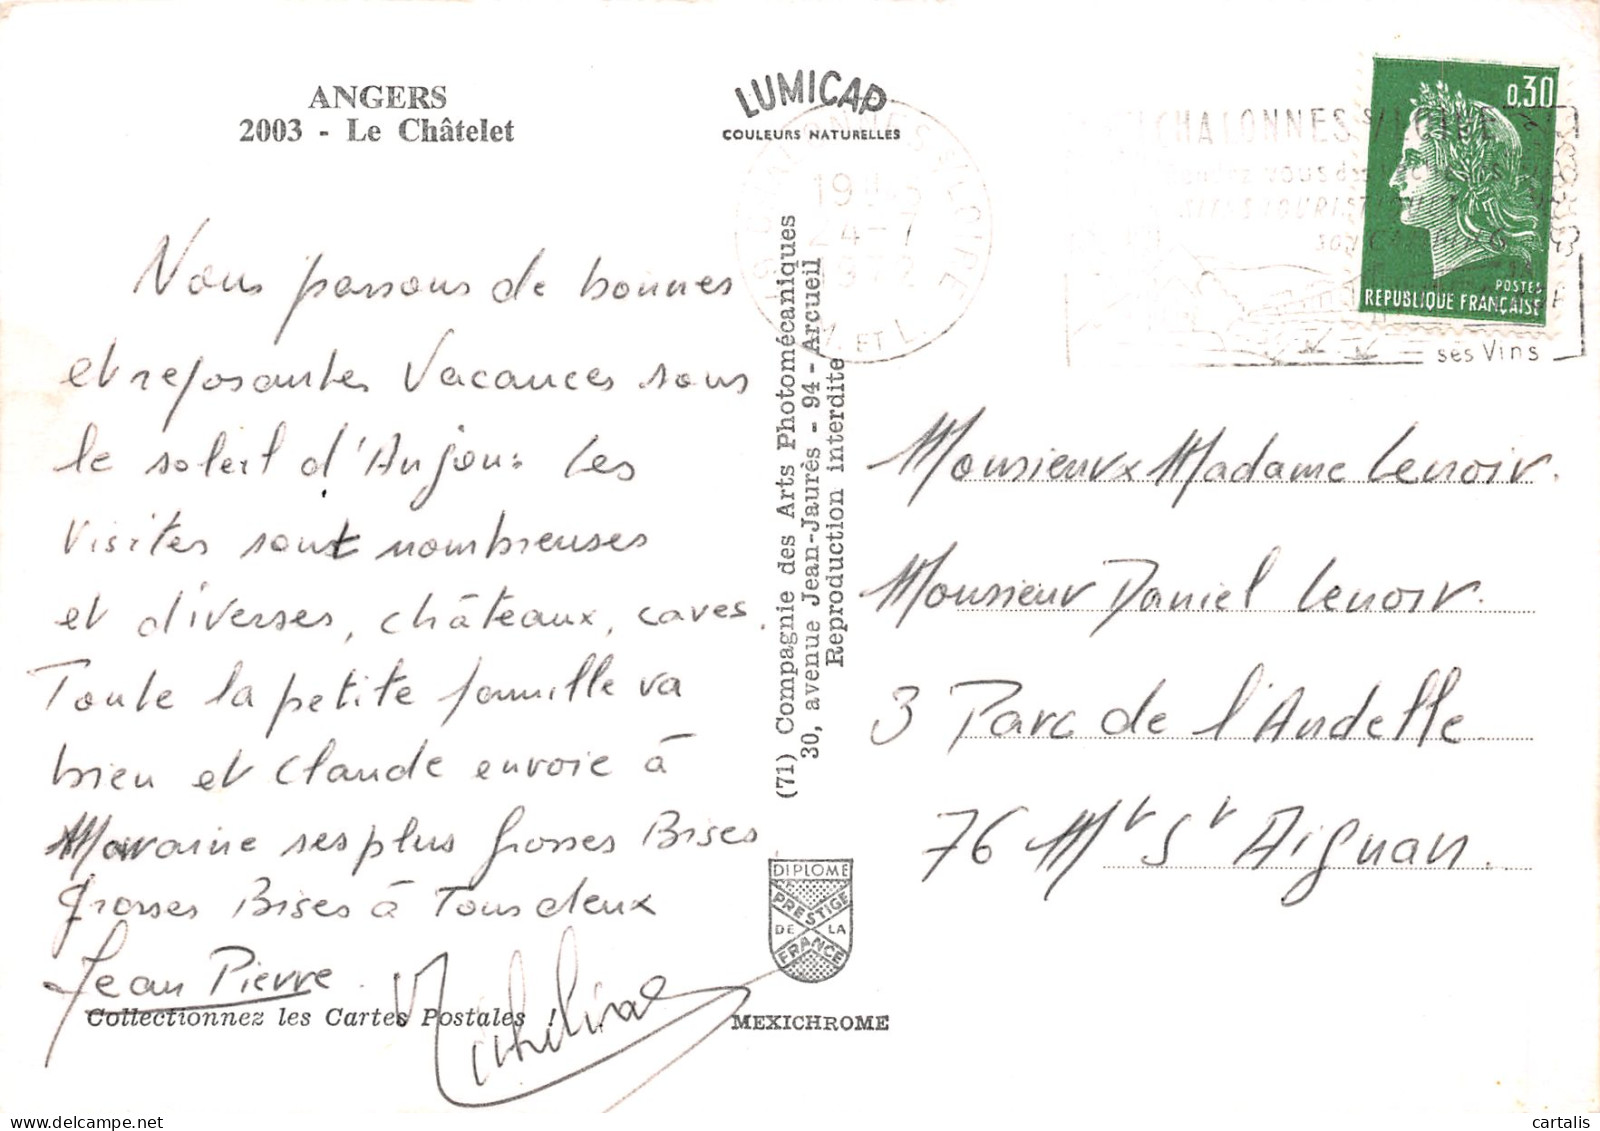 ANGERS
2003 - Le Châtelet
LUMICAP
COULEURS NATURELLES
CHALONNES S/LOIRE
24-7
1972
M. ET L.
ses Vins
0,30
POSTES
REPUBLIQUE FRANÇAISE
Nous passons de bonnes
et reposantes Vacances sous
le soleil d'Anjou. Les
visites sont nombreuses
et diverses, châteaux, caves.
Toute la petite famille va
bien et Claude envoie à
Marraine ses plus grosses Bises
Grosses Bises à Tous deux
Jean Pierre
Collectionnez les Cartes Postales !
(71) Compagnie des Arts Photomécaniques
30, avenue Jean-Jaurès - 94 - Arcueil
Reproduction interdite
DIPLOME
PRESTIGE
DE LA
FRANCE
MEXICHROME
Monsieur x Madame Lenoir.
Monsieur Daniel Lenoir.
3 Parc de l'Andelle
76 Mt St Aignan.
cartalis